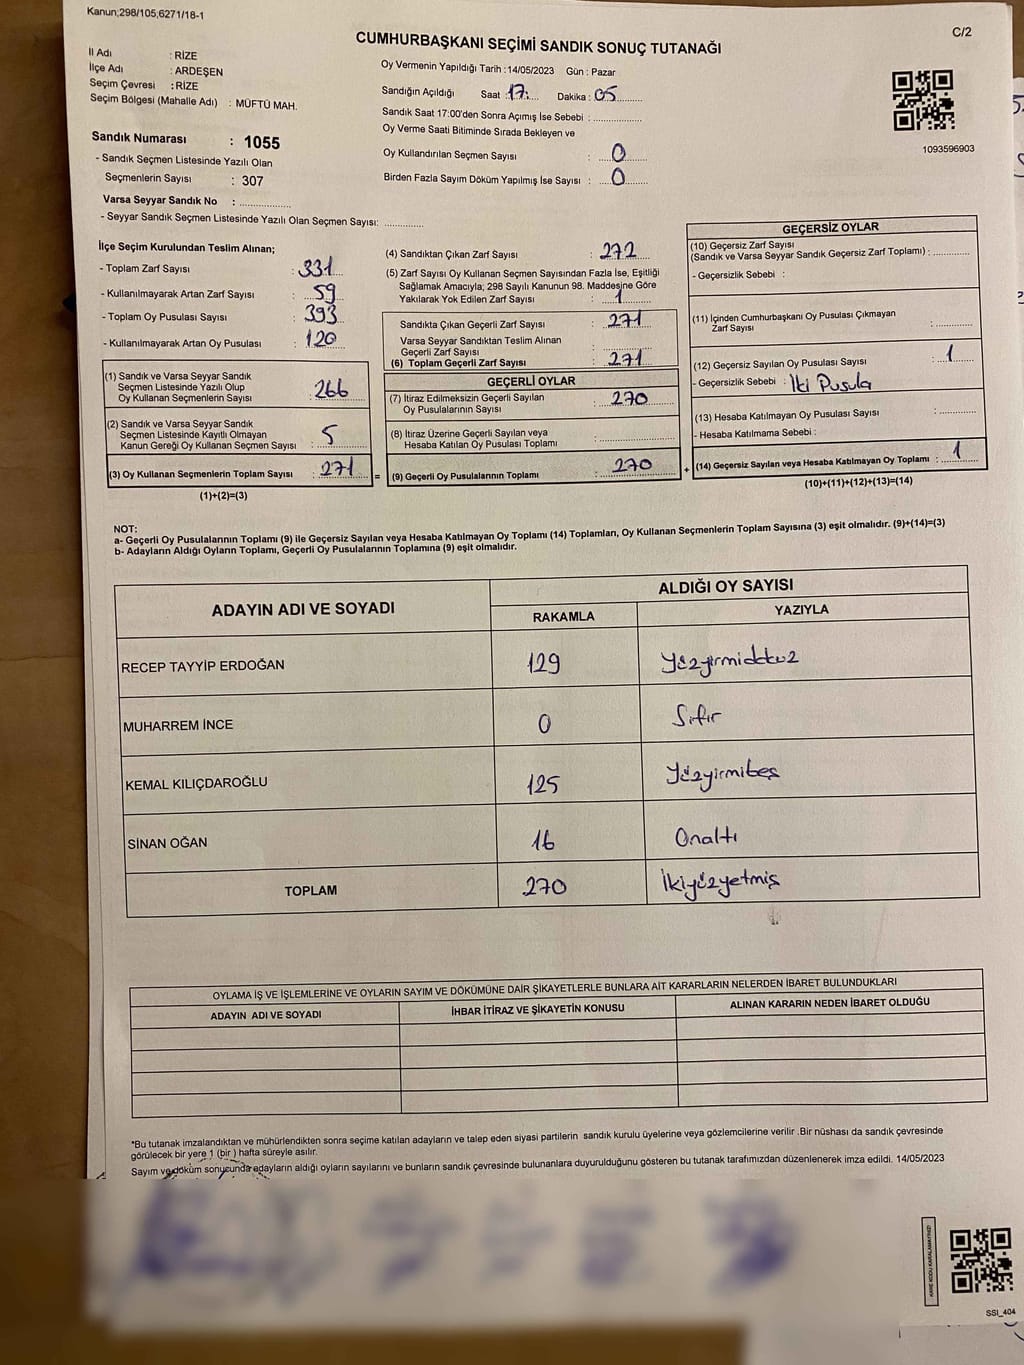 Kanun;298/105;6271/18-1
C/2
CUMHURBAŞKANI SEÇİMİ SANDIK SONUÇ TUTANAĞI
İl Adı : RİZE
İlçe Adı : ARDEŞEN
Seçim Çevresi : RİZE
Seçim Bölgesi (Mahalle Adı) : MÜFTÜ MAH.
Sandık Numarası : 1055
- Sandık Seçmen Listesinde Yazılı Olan
Seçmenlerin Sayısı : 307
Varsa Seyyar Sandık No : ..................
- Seyyar Sandık Seçmen Listesinde Yazılı Olan Seçmen Sayısı: ..............
Oy Vermenin Yapıldığı Tarih :14/05/2023 Gün : Pazar
Sandığın Açıldığı Saat :17:.... Dakika : 05..........
Sandık Saat 17:00'den Sonra Açımış İse Sebebi : ..................
Oy Verme Saati Bitiminde Sırada Bekleyen ve
Oy Kullandırılan Seçmen Sayısı : ....0........
Birden Fazla Sayım Döküm Yapılmış İse Sayısı : ....0........
1093596903
İlçe Seçim Kurulundan Teslim Alınan;
- Toplam Zarf Sayısı : 331
- Kullanılmayarak Artan Zarf Sayısı : 59
- Toplam Oy Pusulası Sayısı : 393
- Kullanılmayarak Artan Oy Pusulası : 120
(1) Sandık ve Varsa Seyyar Sandık
Seçmen Listesinde Yazılı Olup
Oy Kullanan Seçmenlerin Sayısı : 266
(2) Sandık ve Varsa Seyyar Sandık
Seçmen Listesinde Kayıtlı Olmayan
Kanun Gereği Oy Kullanan Seçmen Sayısı : 5
(3) Oy Kullanan Seçmenlerin Toplam Sayısı : 271 =
(1)+(2)=(3)
(4) Sandıktan Çıkan Zarf Sayısı : 272
(5) Zarf Sayısı Oy Kullanan Seçmen Sayısından Fazla İse, Eşitliği
Sağlamak Amacıyla; 298 Sayılı Kanunun 98. Maddesine Göre
Yakılarak Yok Edilen Zarf Sayısı : 1
Sandıkta Çıkan Geçerli Zarf Sayısı : 271
Varsa Seyyar Sandıktan Teslim Alınan
Geçerli Zarf Sayısı : ..............
(6) Toplam Geçerli Zarf Sayısı : 271
GEÇERLİ OYLAR
(7) İtiraz Edilmeksizin Geçerli Sayılan
Oy Pusulalarının Sayısı : 270
(8) İtiraz Üzerine Geçerli Sayılan veya
Hesaba Katılan Oy Pusulası Toplamı : ..............
(9) Geçerli Oy Pusulalarının Toplamı : 270 +
GEÇERSİZ OYLAR
(10) Geçersiz Zarf Sayısı
(Sandık ve Varsa Seyyar Sandık Geçersiz Zarf Toplamı) : ............
- Geçersizlik Sebebi :
(11) İçinden Cumhurbaşkanı Oy Pusulası Çıkmayan
Zarf Sayısı : ............
(12) Geçersiz Sayılan Oy Pusulası Sayısı : 1
- Geçersizlik Sebebi : İki Pusula
(13) Hesaba Katılmayan Oy Pusulası Sayısı : ............
- Hesaba Katılmama Sebebi :
(14) Geçersiz Sayılan veya Hesaba Katılmayan Oy Toplamı : 1
(10)+(11)+(12)+(13)=(14)
NOT:
a- Geçerli Oy Pusulalarının Toplamı (9) ile Geçersiz Sayılan veya Hesaba Katılmayan Oy Toplamı (14) Toplamları, Oy Kullanan Seçmenlerin Toplam Sayısına (3) eşit olmalıdır. (9)+(14)=(3)
b- Adayların Aldığı Oyların Toplamı, Geçerli Oy Pusulalarının Toplamına (9) eşit olmalıdır.
ADAYIN ADI VE SOYADI ALDIĞI OY SAYISI
RAKAMLA YAZIYLA
RECEP TAYYİP ERDOĞAN 129 Yüzyirmidokuz
MUHARREM İNCE 0 Sıfır
KEMAL KILIÇDAROĞLU 125 Yüzyirmibeş
SİNAN OĞAN 16 Onaltı
TOPLAM 270 İkiyüzyetmiş
OYLAMA İŞ VE İŞLEMLERİNE VE OYLARIN SAYIM VE DÖKÜMÜNE DAİR ŞİKAYETLERLE BUNLARA AİT KARARLARIN NELERDEN İBARET BULUNDUKLARI
ADAYIN ADI VE SOYADI İHBAR İTİRAZ VE ŞİKAYETİN KONUSU ALINAN KARARIN NEDEN İBARET OLDUĞU
*Bu tutanak imzalandıktan ve mühürlendikten sonra seçime katılan adayların ve talep eden siyasi partilerin sandık kurulu üyelerine veya gözlemcilerine verilir .Bir nüshası da sandık çevresinde
görülecek bir yere 1 (bir ) hafta süreyle asılır.
Sayım ve döküm sonucunda adayların aldığı oyların sayılarını ve bunların sandık çevresinde bulunanlara duyurulduğunu gösteren bu tutanak tarafımızdan düzenlenerek imza edildi. 14/05/2023
KARE KODU KARALAMAYINIZ!
SSI_404